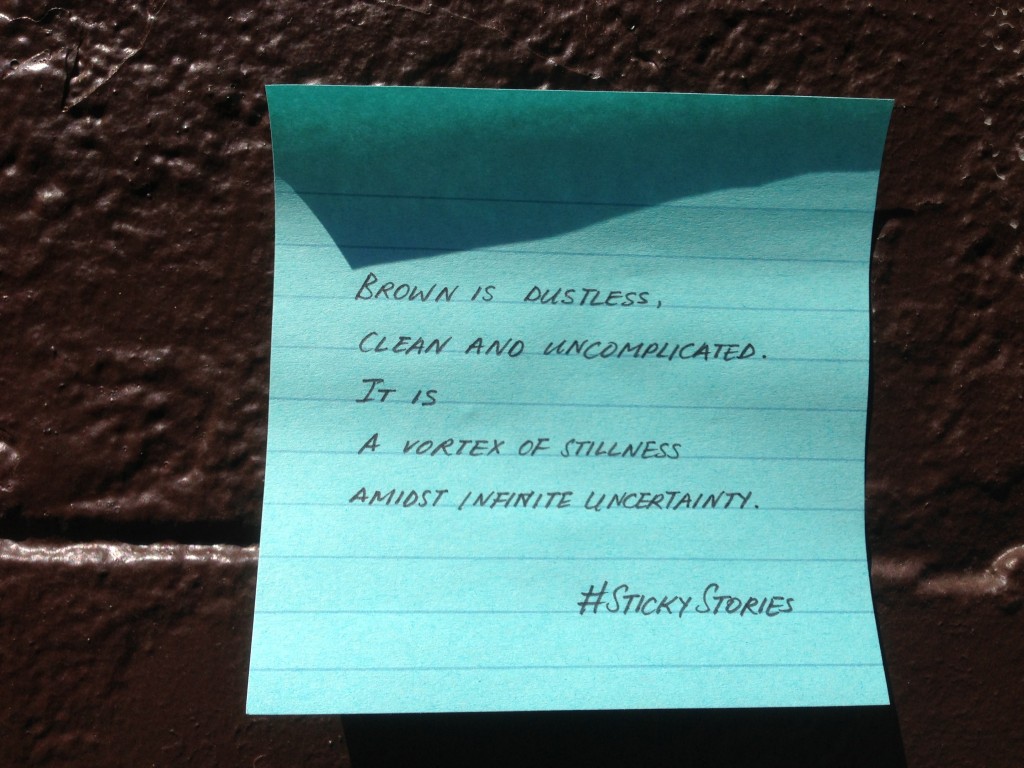 BROWN IS DUSTLESS,
CLEAN AND UNCOMPLICATED.
IT IS
A VORTEX OF STILLNESS
AMIDST INFINITE UNCERTAINTY.
#STICKYSTORIES